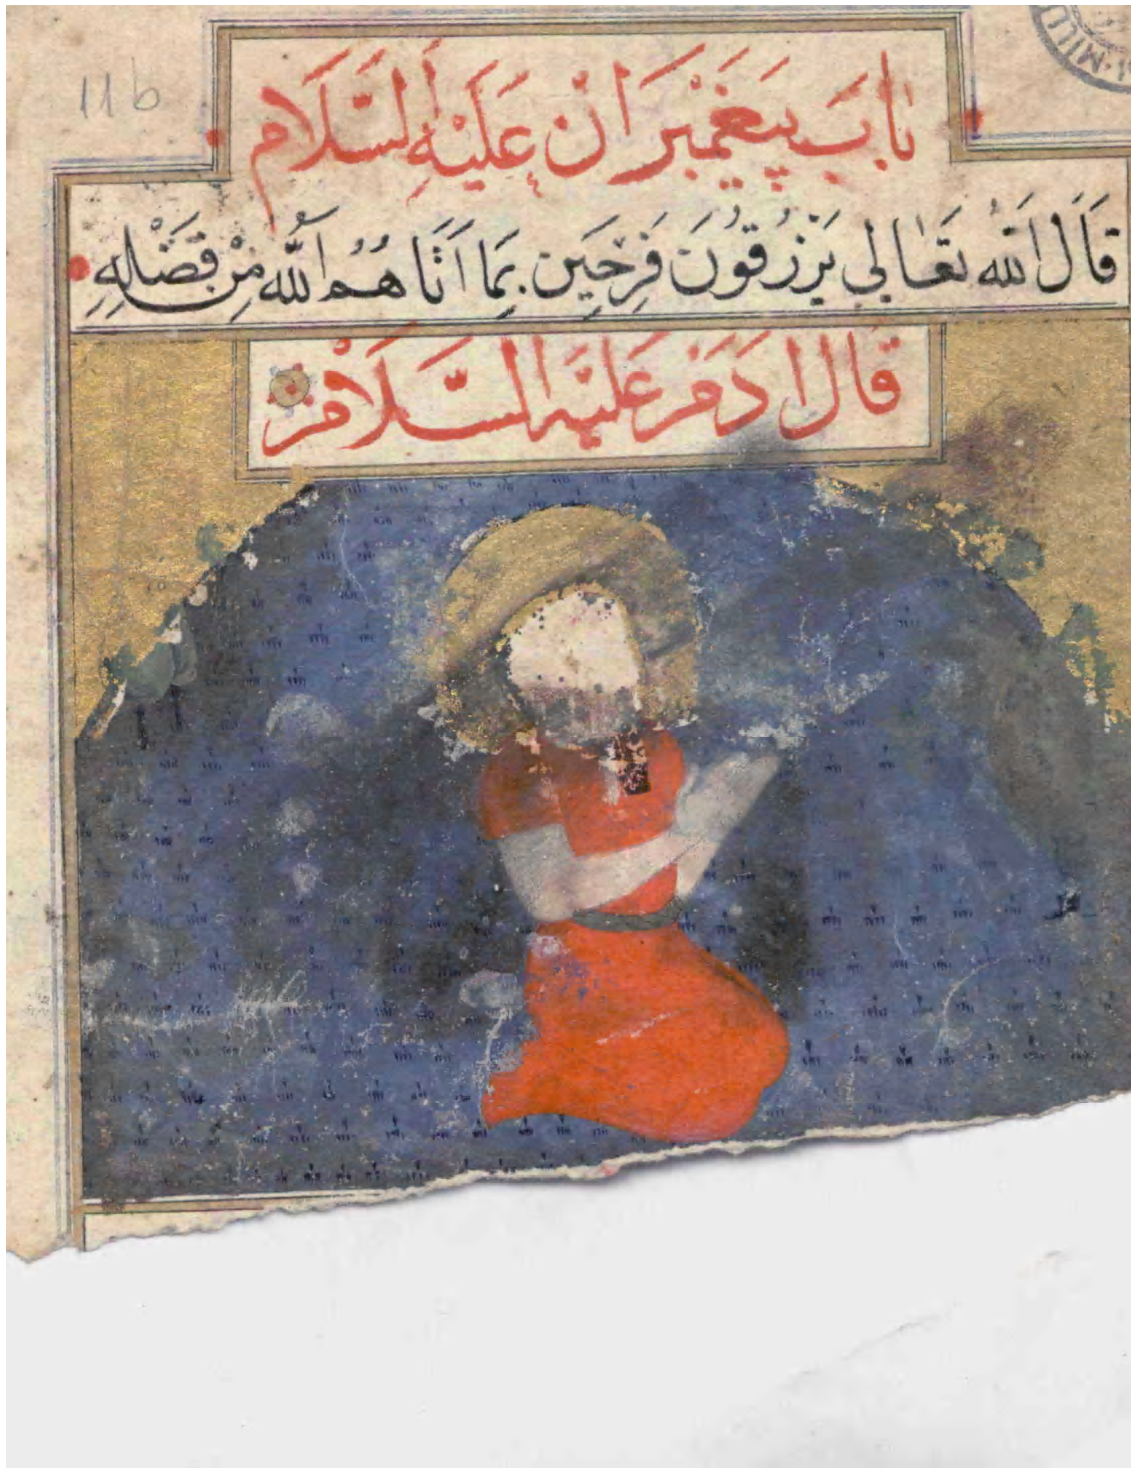 11b
MILL
بَابَ پیَغَمْبَرَانْ عَلَیْهِ السَّلَام
قَالَ اللهُ تَعَالِي يَرْزُقُونَ فَرِحَيِن بِمَا اَتَاهُمُ اللهُ مِنْ فَضْلِهِ
قَالَ ادَمَر عَلَيْهِ السَّلَامْر